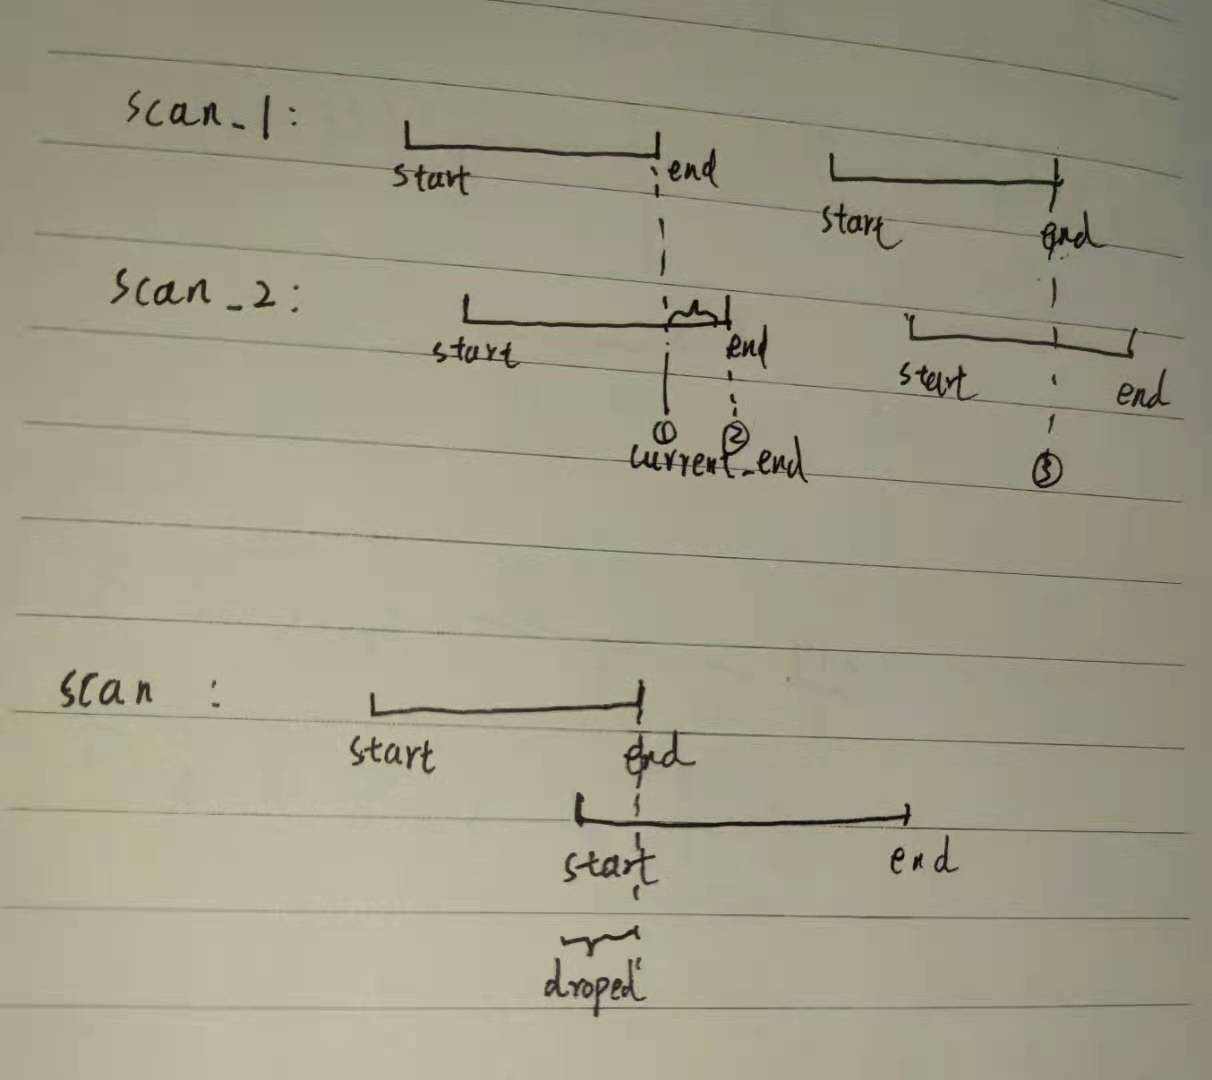 scan_1:
start end start end
scan_2:
start end start end
① ② ③
current_end
scan :
start end
start end
droped